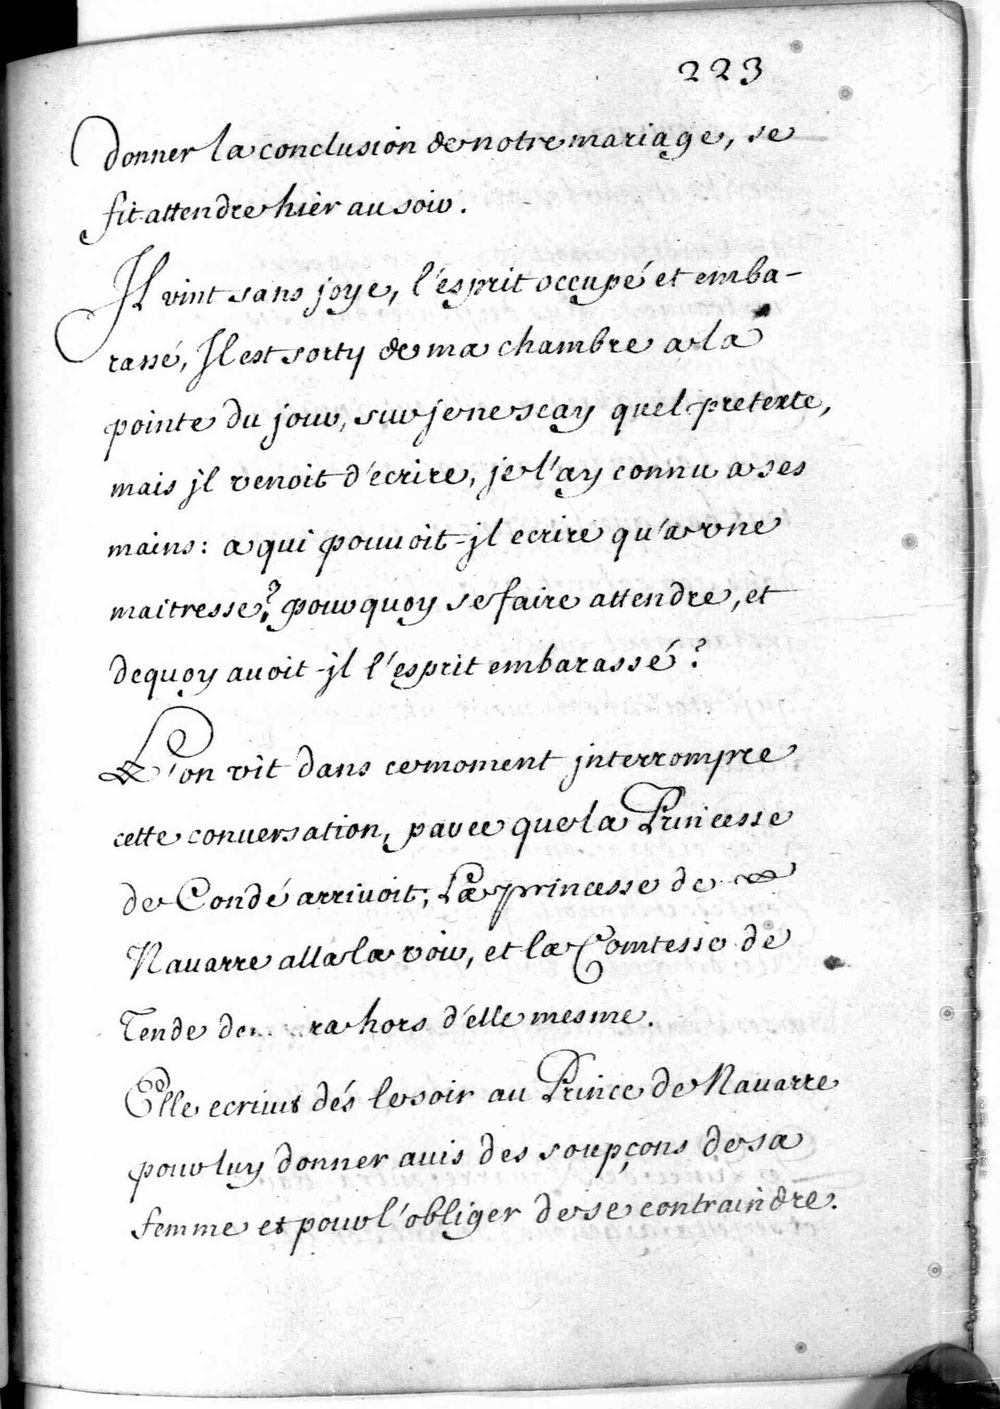 223
donner la conclusion de notre mariage, se
fit attendre hier au soir.
Il vint sans joye, l'esprit occupé et emba-
rassé, Il est sorty de ma chambre a la
pointe du jour, sur je ne scay quel pretexte,
mais jl venoit d'écrire, je l'ay connu a ses
mains: a qui pouvoit-jl ecrire qu'a vne
maitresse? pourquoy se faire attendre, et
dequoy avoit-jl l'esprit embarassé?
L'on vit dans ce moment jnterrompre
cette conversation, parce que la Princesse
de Condé arrivoit; La princesse de
Navarre alla la voir, et la Comtesse de
Tende hors d'elle mesme.
Elle ecrivit dés le soir au Prince de Navarre
pour luy donner avis des soupçons de sa
femme et pour l'obliger de se contraindre.